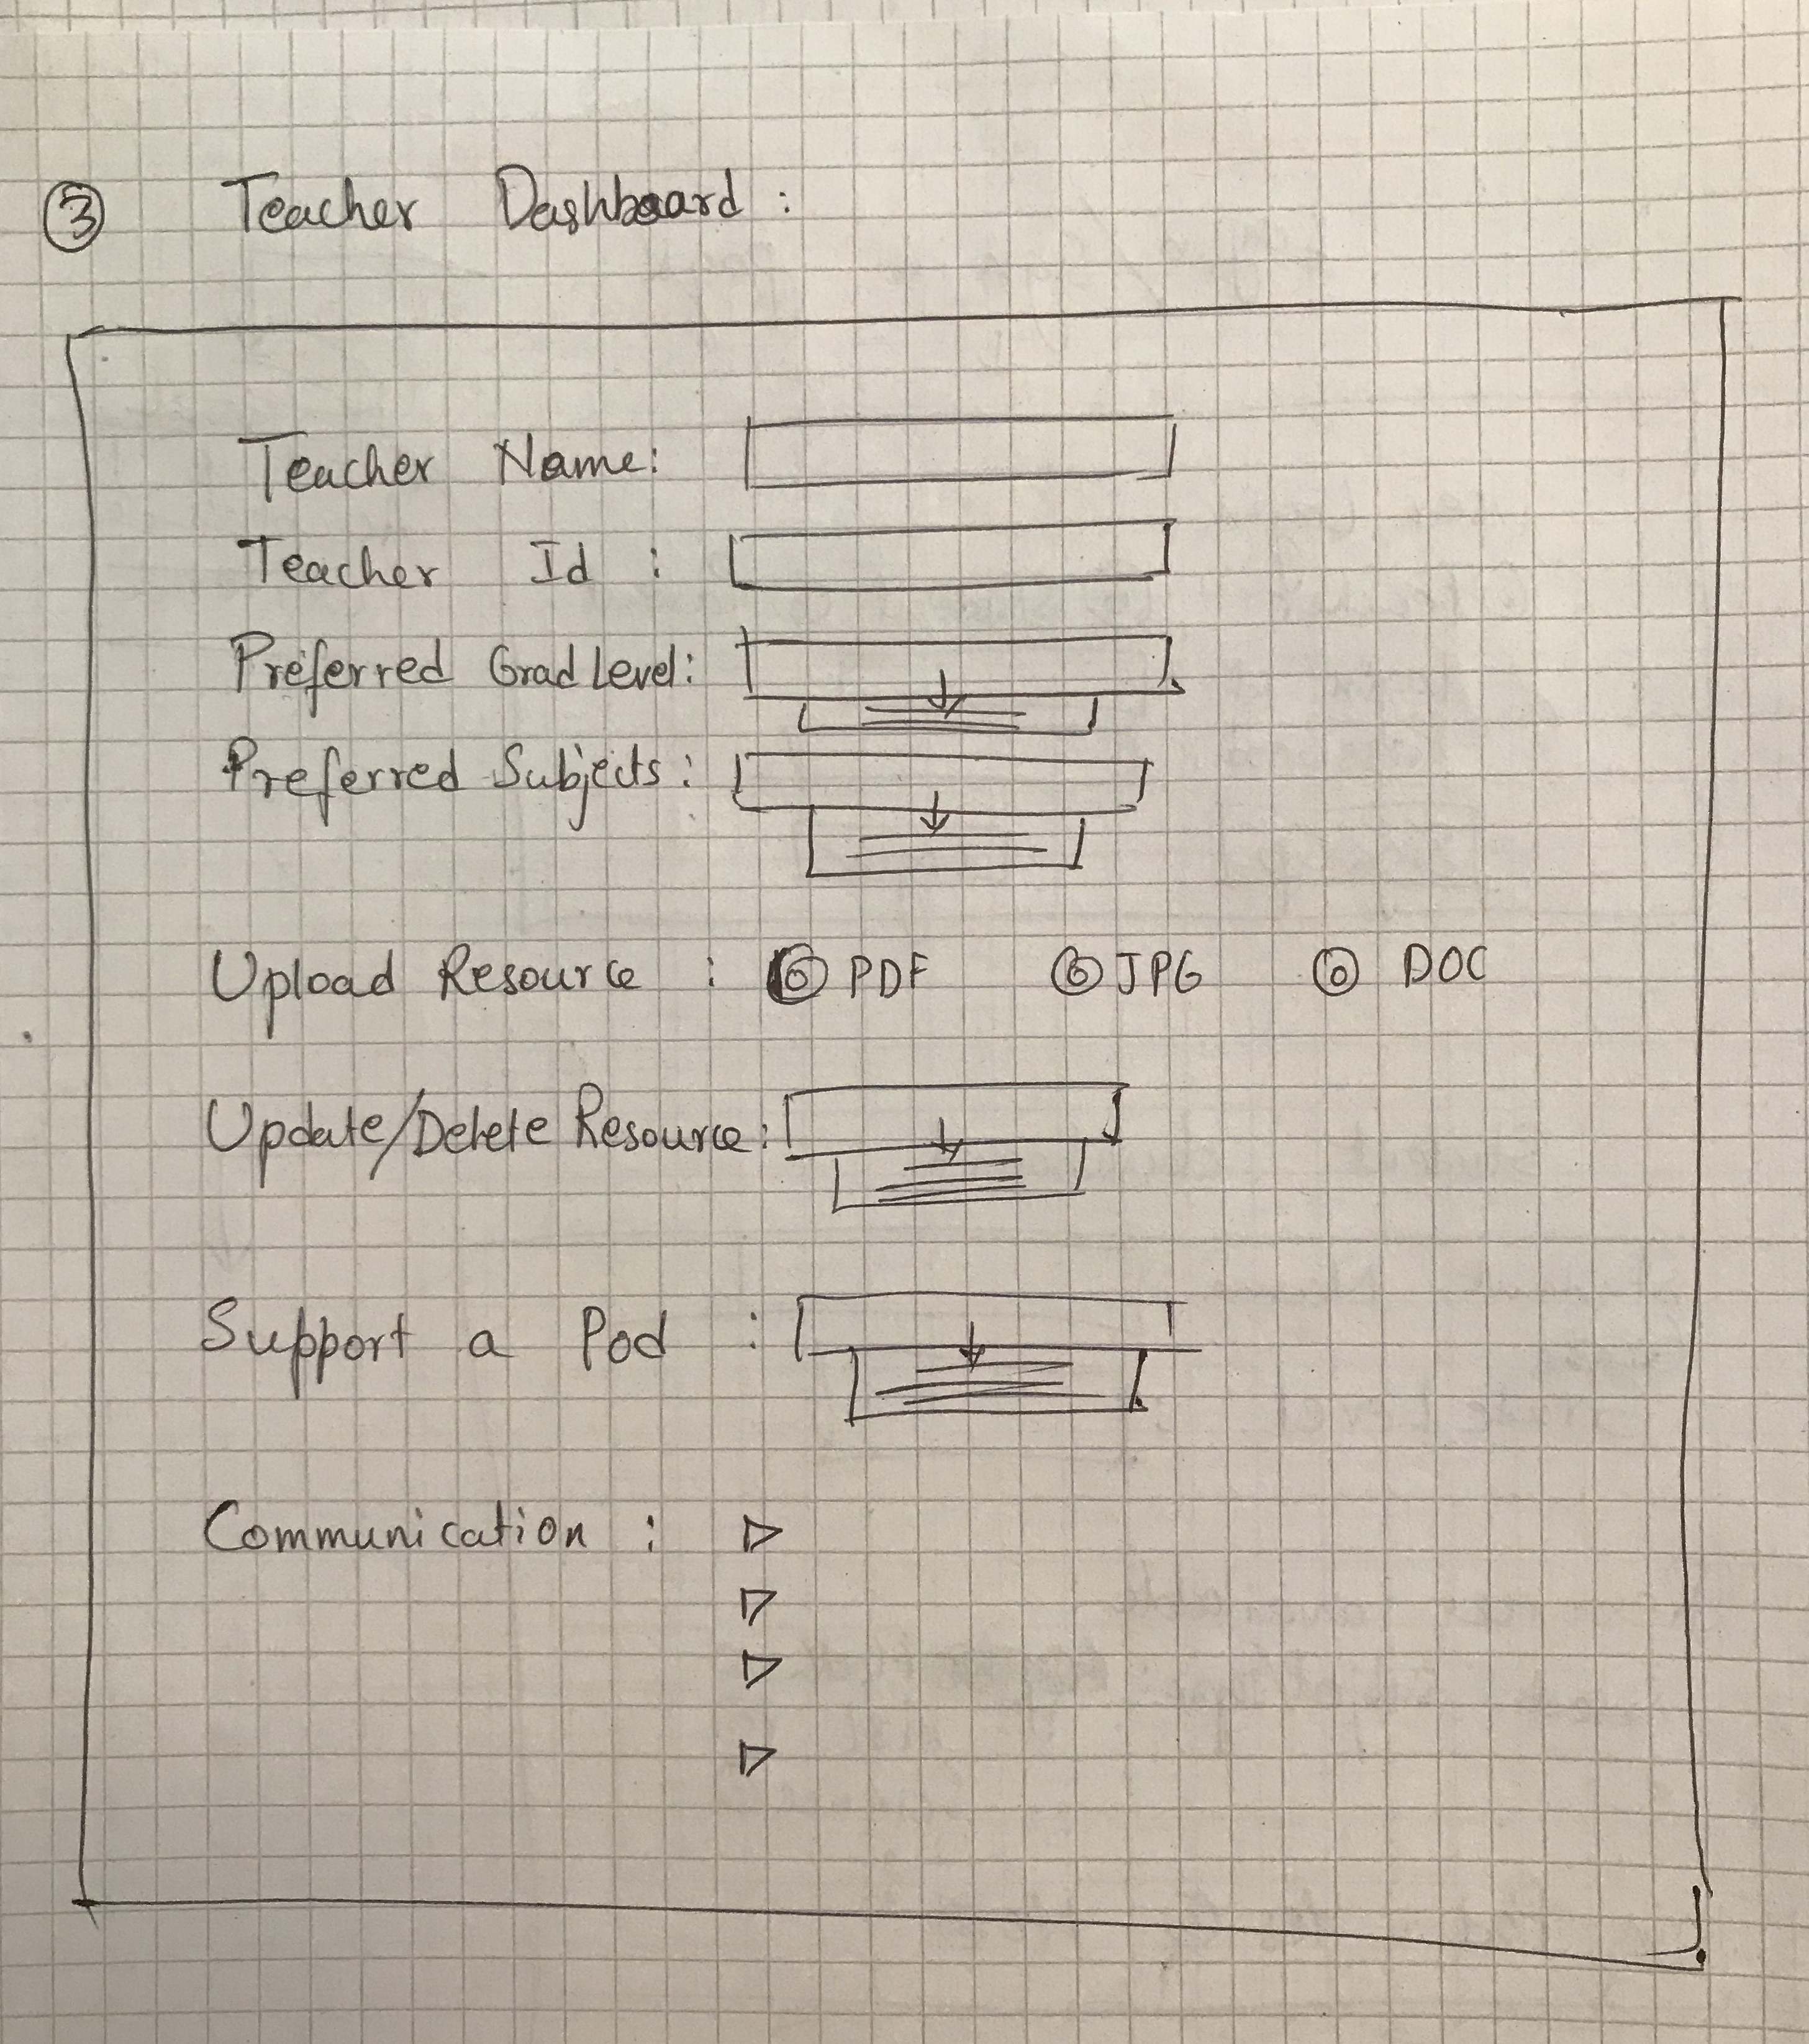 3 Teacher Dashboard :
Teacher Name:
Teacher Id :
Preferred Grad Level:
Preferred Subjects :
Upload Resource : PDF JPG DOC
Update/Delete Resource:
Support a Pod :
Communication :